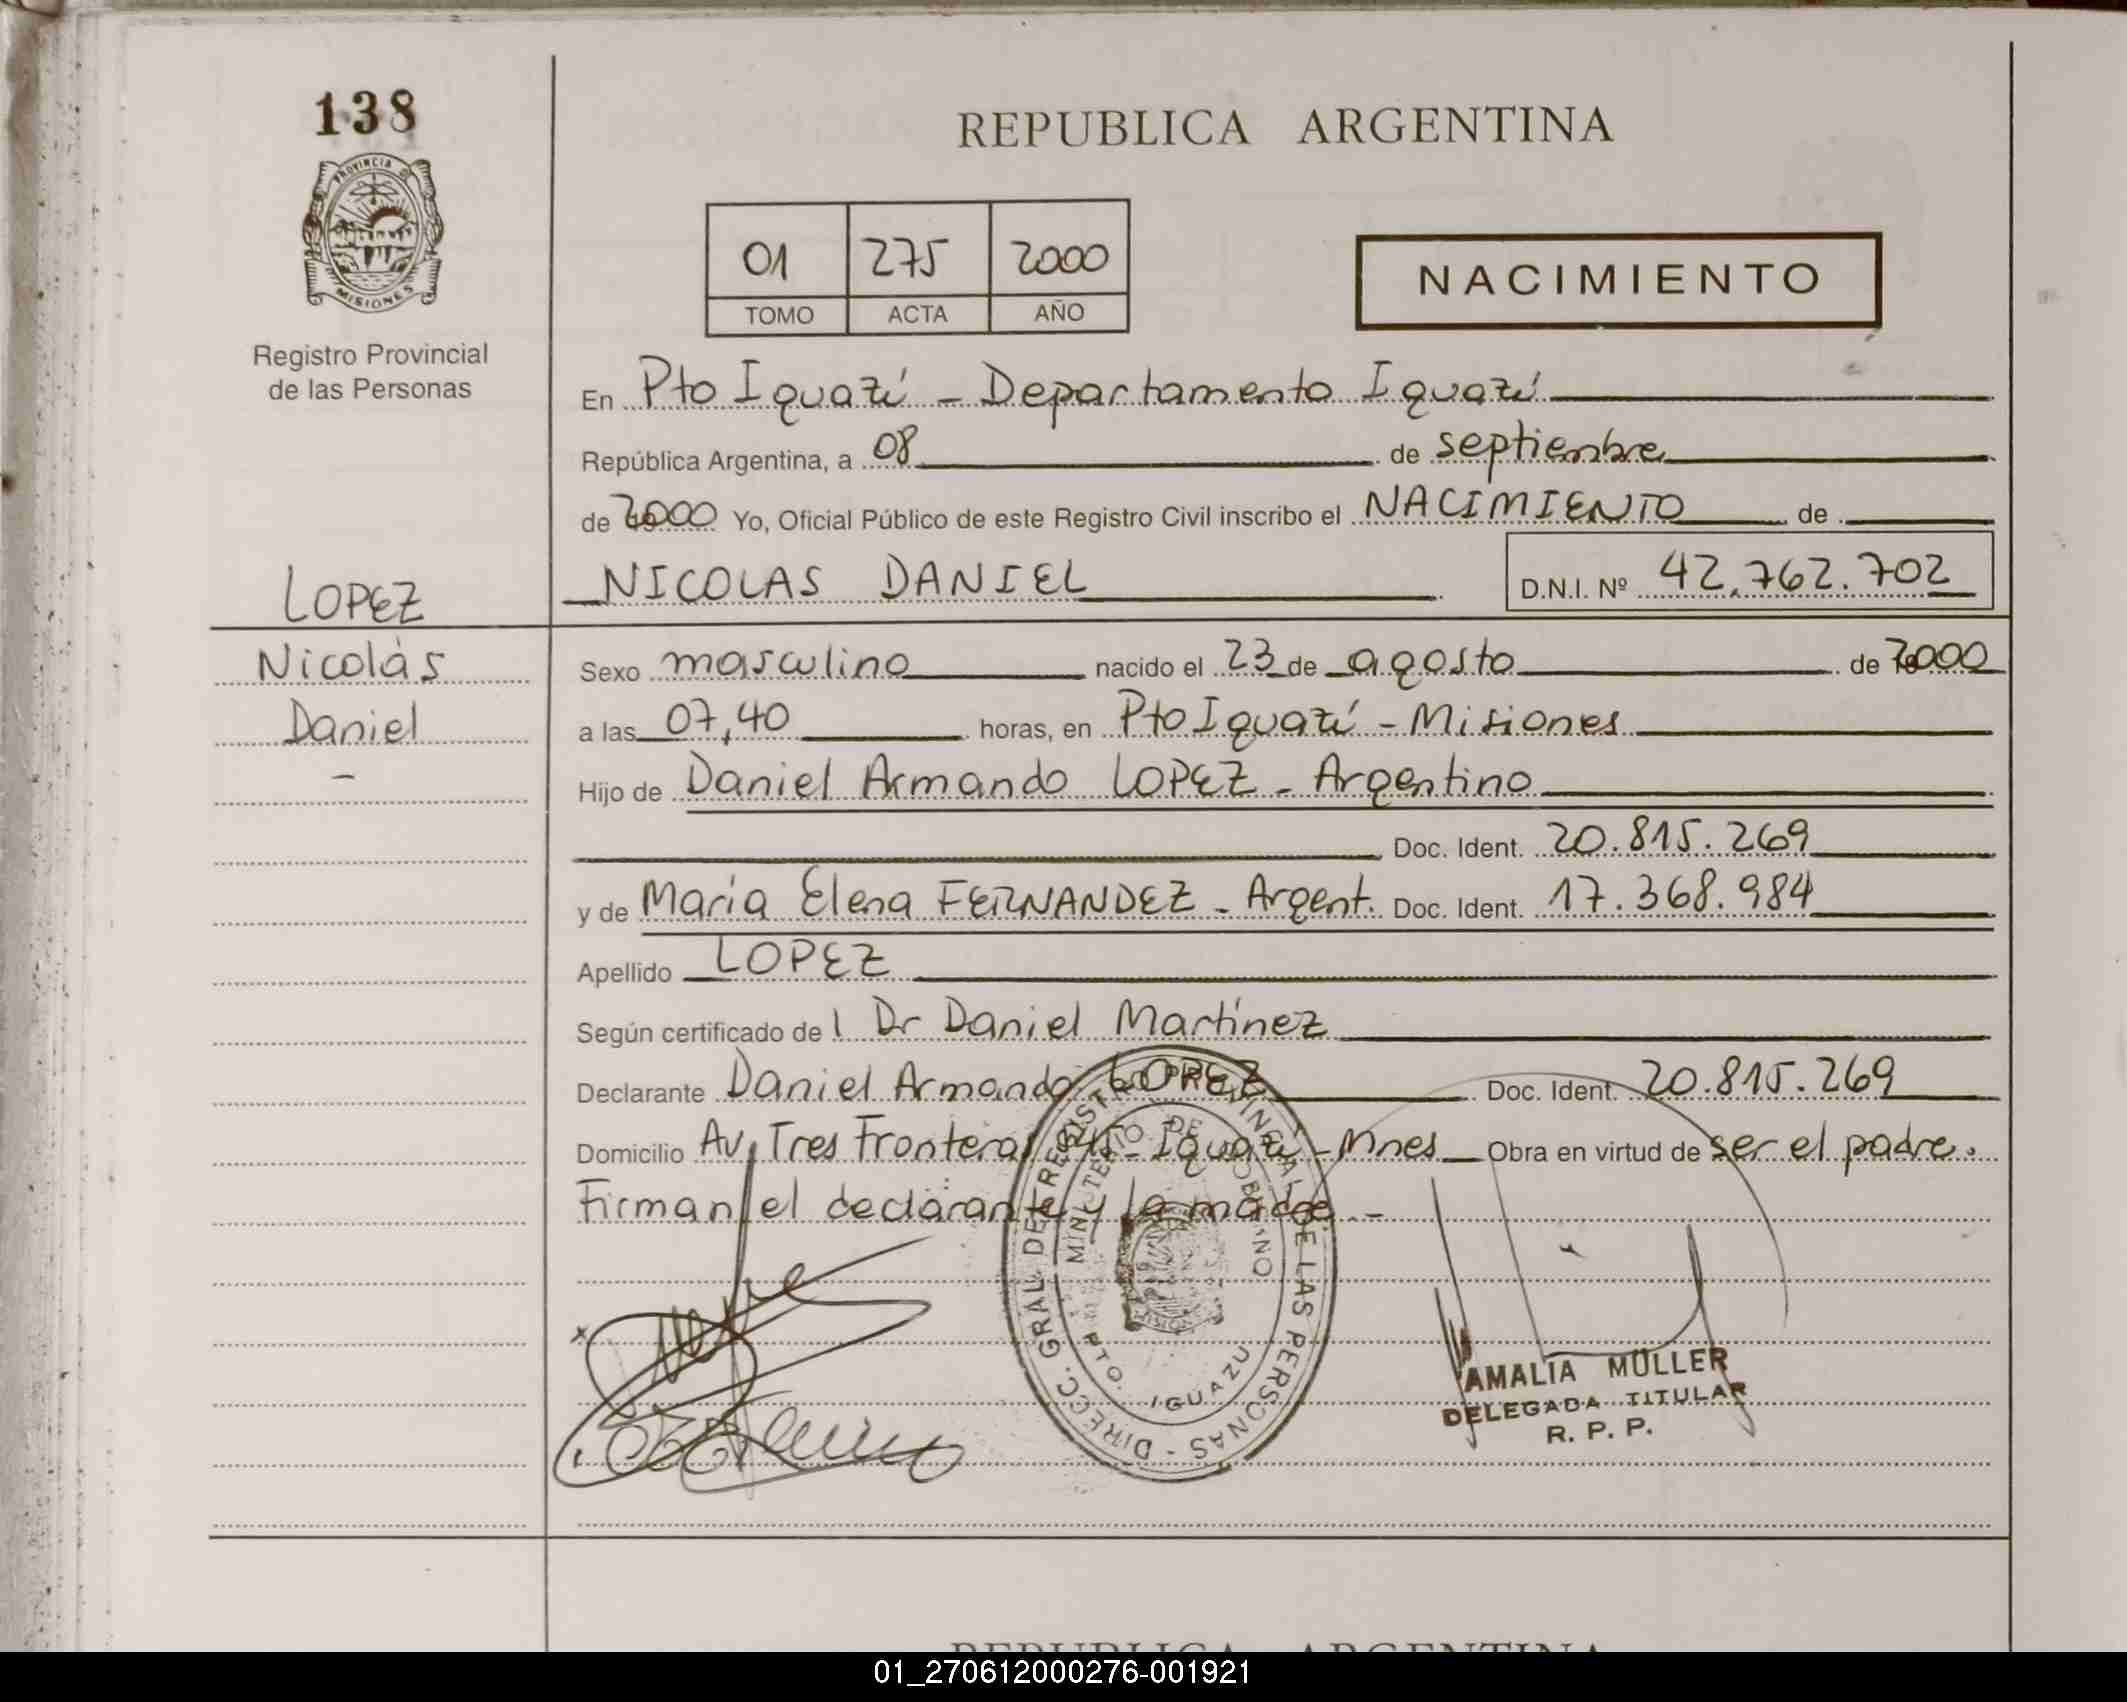 138
PROVINCIA
MISIONES
Registro Provincial
de las Personas
REPUBLICA ARGENTINA
01 275 2000
TOMO ACTA AÑO
NACIMIENTO
En Pto Iguazú - Departamento Iguazú
República Argentina, a 08 de septiembre
de 2000 Yo, Oficial Público de este Registro Civil inscribo el NACIMIENTO de
NICOLAS DANIEL D.N.I. Nº 42.762.702
LOPEZ
Nicolás
Daniel
-
Sexo masculino nacido el 23 de agosto de 2000
a las 07,40 horas, en Pto Iguazú - Misiones
Hijo de Daniel Armando LOPEZ - Argentino
Doc. Ident. 20.815.269
y de María Elena FERNANDEZ - Argent. Doc. Ident. 17.368.984
Apellido LOPEZ
Según certificado de l Dr Daniel Martínez
Declarante Daniel Armando LOPEZ Doc. Ident. 20.815.269
Domicilio Av. Tres Fronteras - Iguazú - Mnes Obra en virtud de ser el padre.
Firman el declarante y la madre.-
DIRECC. GRAL. DE REGISTRO PROVINCIAL DE LAS PERSONAS -
MINISTERIO DE GOBIERNO
PTO. IGUAZU
AMALIA MÜLLER
DELEGADA TITULAR
R. P. P.
REPUBLICA ARGENTINA
01_270612000276-001921